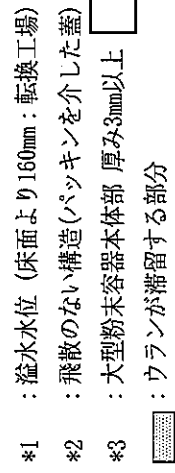 *1 ：溢水水位 (床面より160mm：転換工場)
*2 ：飛散のない構造(パッキンを介した蓋)
*3 ：大型粉末容器本体部 厚み3mm以上
：ウランが滞留する部分